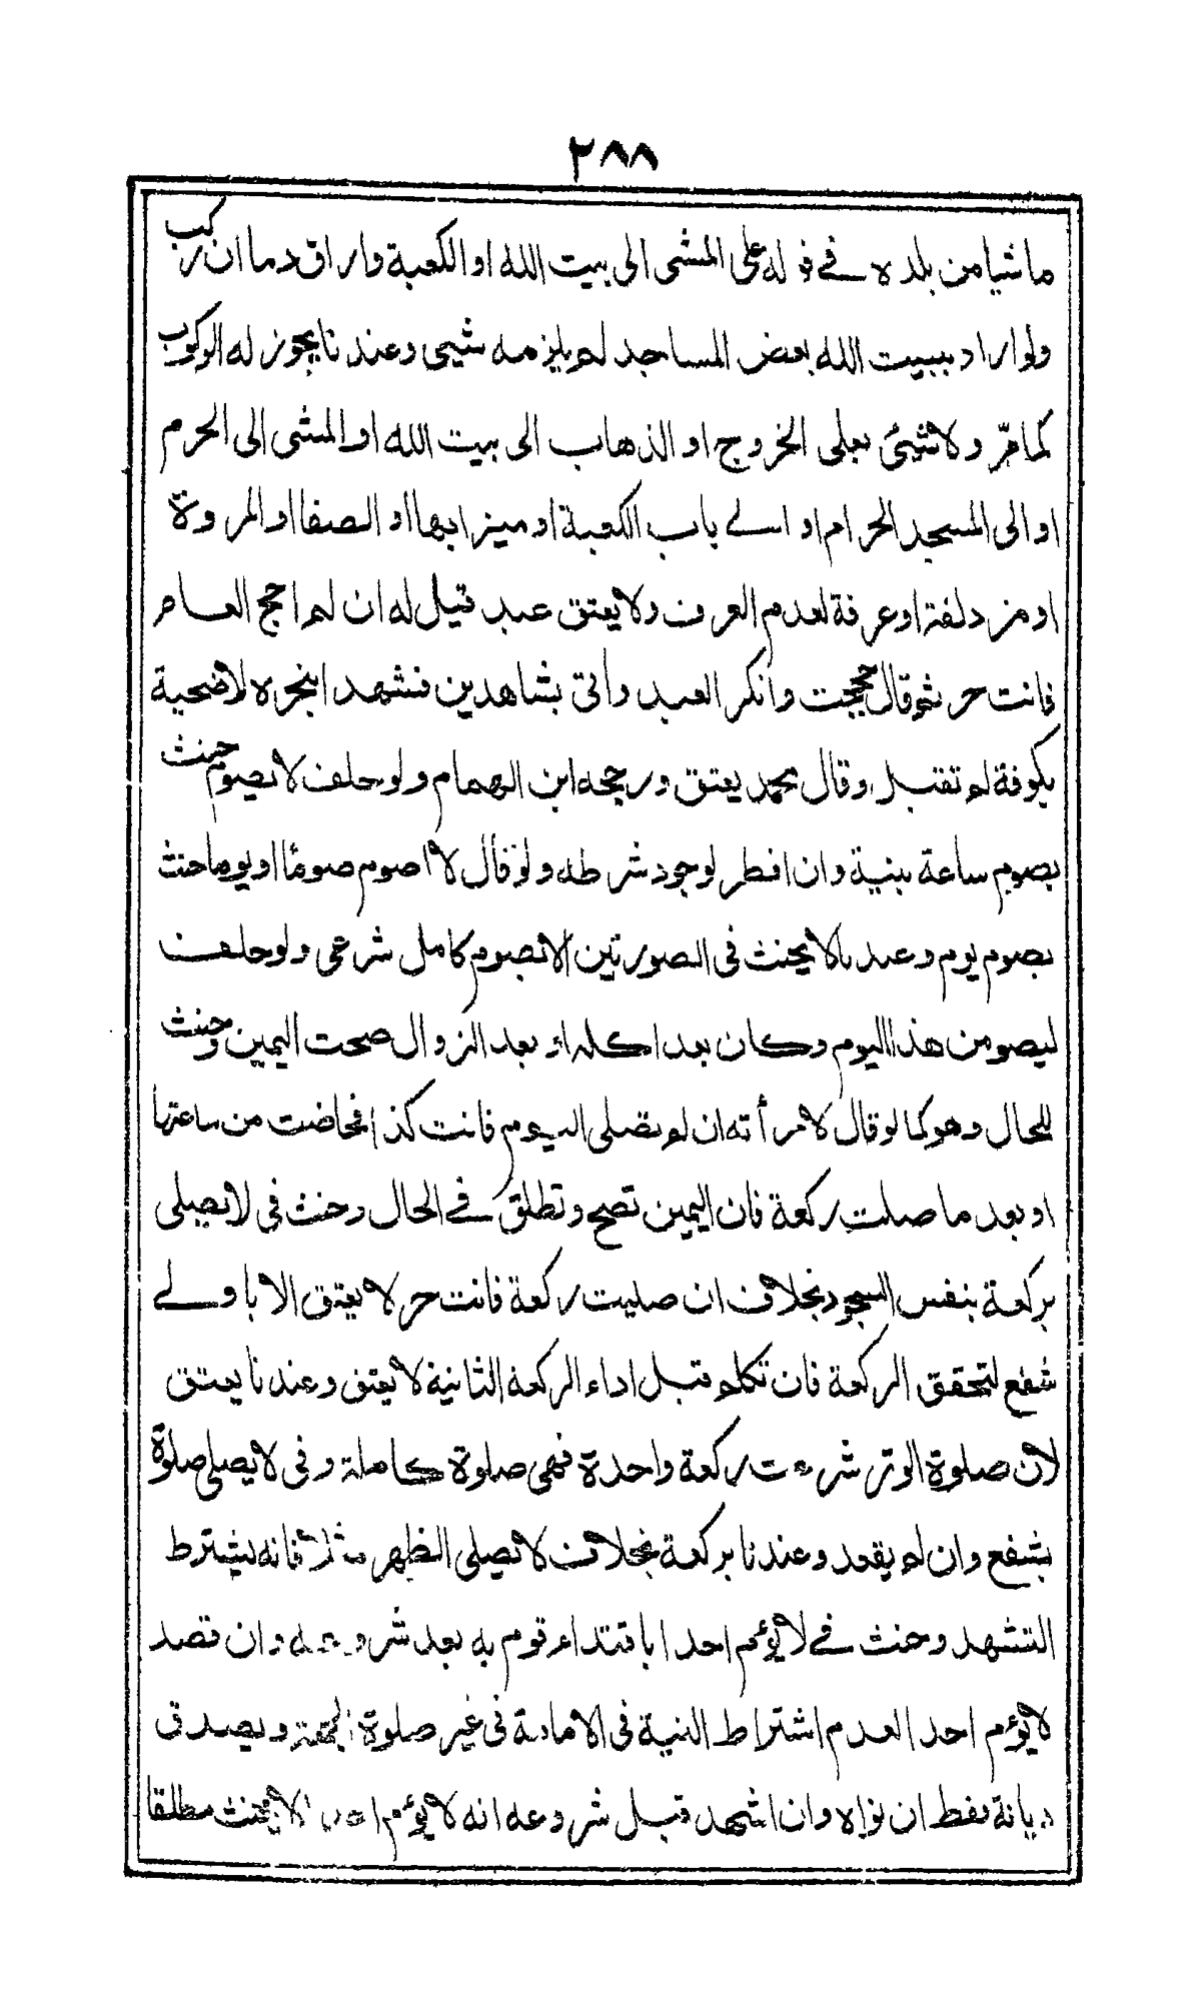 ٢٨٨
ماشيا من بلده في قوله على المشى الى بيت الله او الكعبة واراق دما ان ركب
ولو اراد ببيت الله بعض المساجد لم يلزمه شيئ وعندنا يجوز له الركوب
كما مرّ ولا شيئ بعلى الخروج او الذهاب الى بيت الله او المشى الى الحرم
او الى المسجد الحرام او الى باب الكعبة او ميزابها او الصفا او المروة
او مزدلفة او عرفة لعدم العرف ولا يعتق عبد قيل له ان لم احج العام
فانت حر ثم قال حججت وانكر العبد واتى بشاهدين فشهدا بنحره لاضحية
بكوفة لم تقبل وقال محمد يعتق ورجحه ابن الهمام ولو حلف لا يصوم حنث
بصوم ساعة بنية وان افطر لوجود شرطه ولو قال لا اصوم صومًا او يوما حنث
بصوم يوم وعندنا لا يحنث فى الصورتين الا بصوم كامل شرعى ولو حلف
ليصومن هذا اليوم وكان بعد اكله او بعد الزوال صحت اليمين وحنث
للحال وهو كما لو قال لامرأته ان لم تصلى اليوم فانت كذا فحاضت من ساعتها
او بعد ما صلت ركعة فان اليمين تصح وتطلق في الحال وحنث في لا يصلى
بركعة بنفس السجود بخلاف ان صليت ركعة فانت حر لا يعتق الا باولى
شفع لتحقق الركعة فان تكلم قبل اداء الركعة الثانية لا يعتق وعندنا يعتق
لان صلوة الوتر شرعت ركعة واحدة فهى صلوة كاملة وفى لا يصلى صلوة
بشفع وان لم يقعد وعندنا بركعة بخلاف لا يصلى الظهر مثلا فانه يشترط
التشهد وحنث في لا يؤم احدا باقتداء قوم به بعد شروعه وان قصد
لا يؤم احدا لعدم اشتراط النية فى الامامة فى غير صلوة الجمعة ويصدق
ديانة فقط ان نواه وان اشهد قبل شروعه انه لا يؤم احدا لا يحنث مطلقا